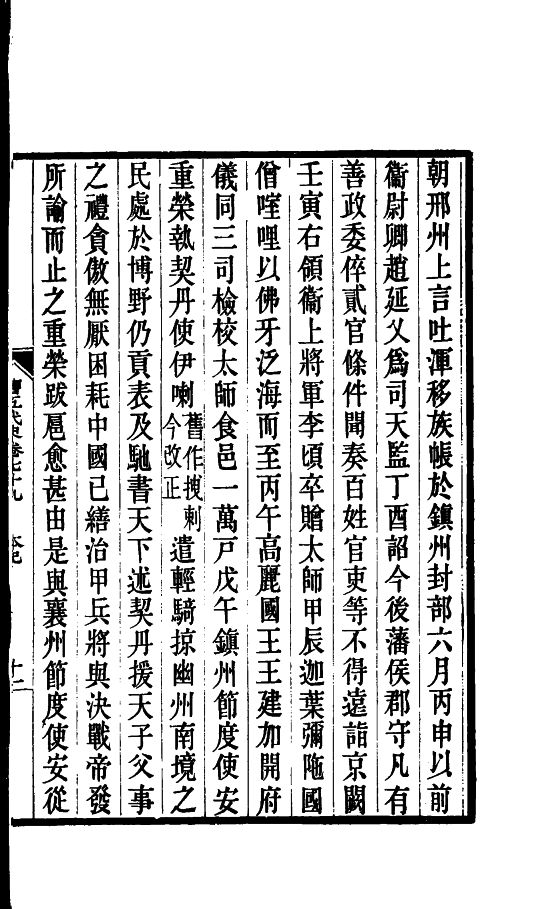 朝邢州上言吐渾移族帳於鎮州封部六月丙申以前
衞尉卿趙延乂爲司天監丁酉詔今後藩侯郡守凡有
善政委倅貳官條件聞奏百姓官吏等不得遠詣京闕
壬寅右領衞上將軍李頃卒贈太師甲辰迦葉彌陁國
僧㗌哩以佛牙泛海而至丙午高麗國王王建加開府
儀同三司檢校太師食邑一萬戸戊午鎮州節度使安
重榮執契丹使伊喇舊作拽剌今改正遣輕騎掠幽州南境之
民處於博野仍貢表及馳書天下述契丹援天子父事
之禮貪傲無厭困耗中國已繕治甲兵將與決戰帝發
所諭而止之重榮跋扈愈甚由是與襄州節度使安從
舊五代史卷七十九 本紀 十一